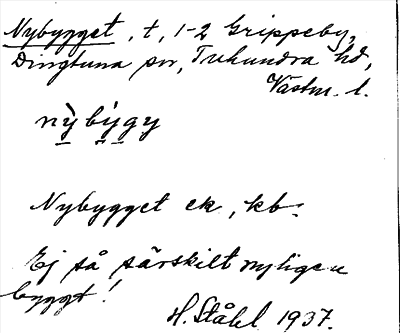 Nybygget, t, 1-2 Grippeby,
Dingtuna sn, Tuhundra hd,
Västm. l.
nỳbýgy
Nybygget ek, kb.
Ej så särskilt nyligen
byggt!
H. Ståhl 1937.